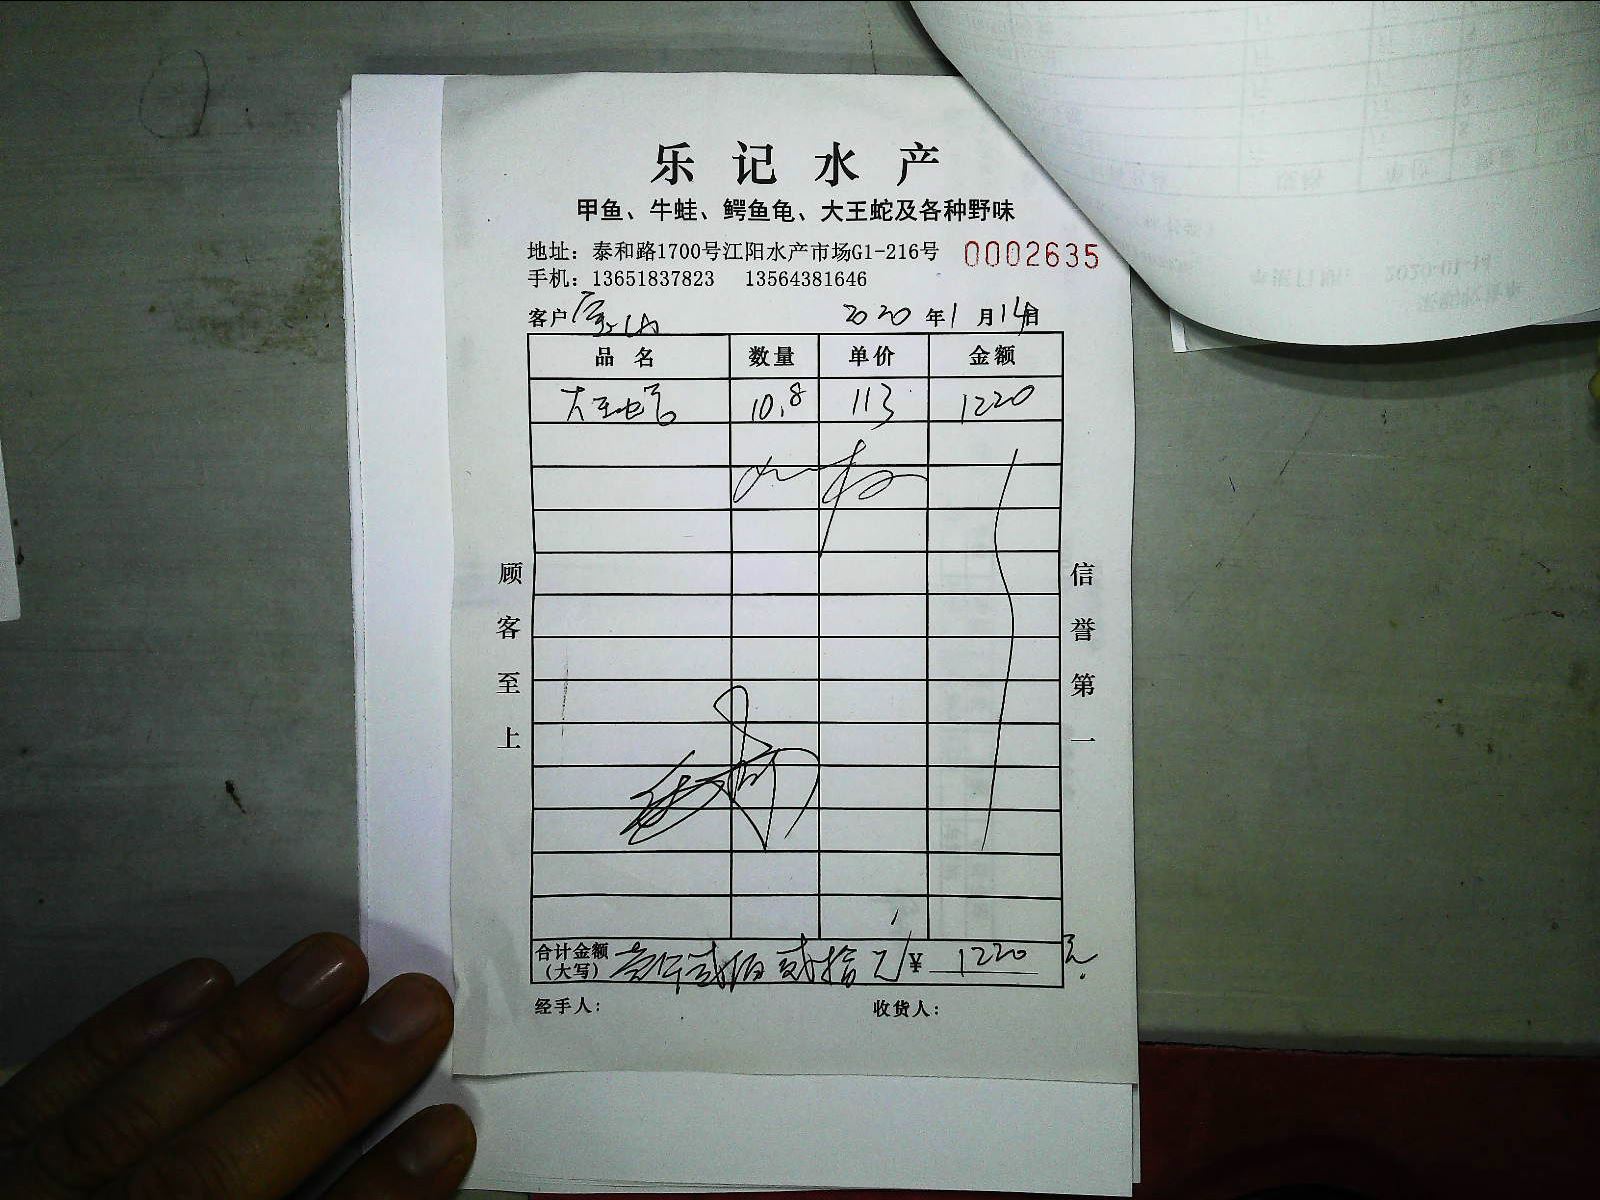 乐记水产
甲鱼、牛蛙、鳄鱼龟、大王蛇及各种野味
地址：泰和路1700号江阳水产市场G1-216号 0002635
手机：13651837823 13564381646
客户 宝山 2020年1月14日
品名 数量 单价 金额
大王蛇 10.8 113 1220
顾客至上
信誉第一
合计金额（大写）壹仟贰佰贰拾元 ¥ 1220 元
经手人： 收货人：